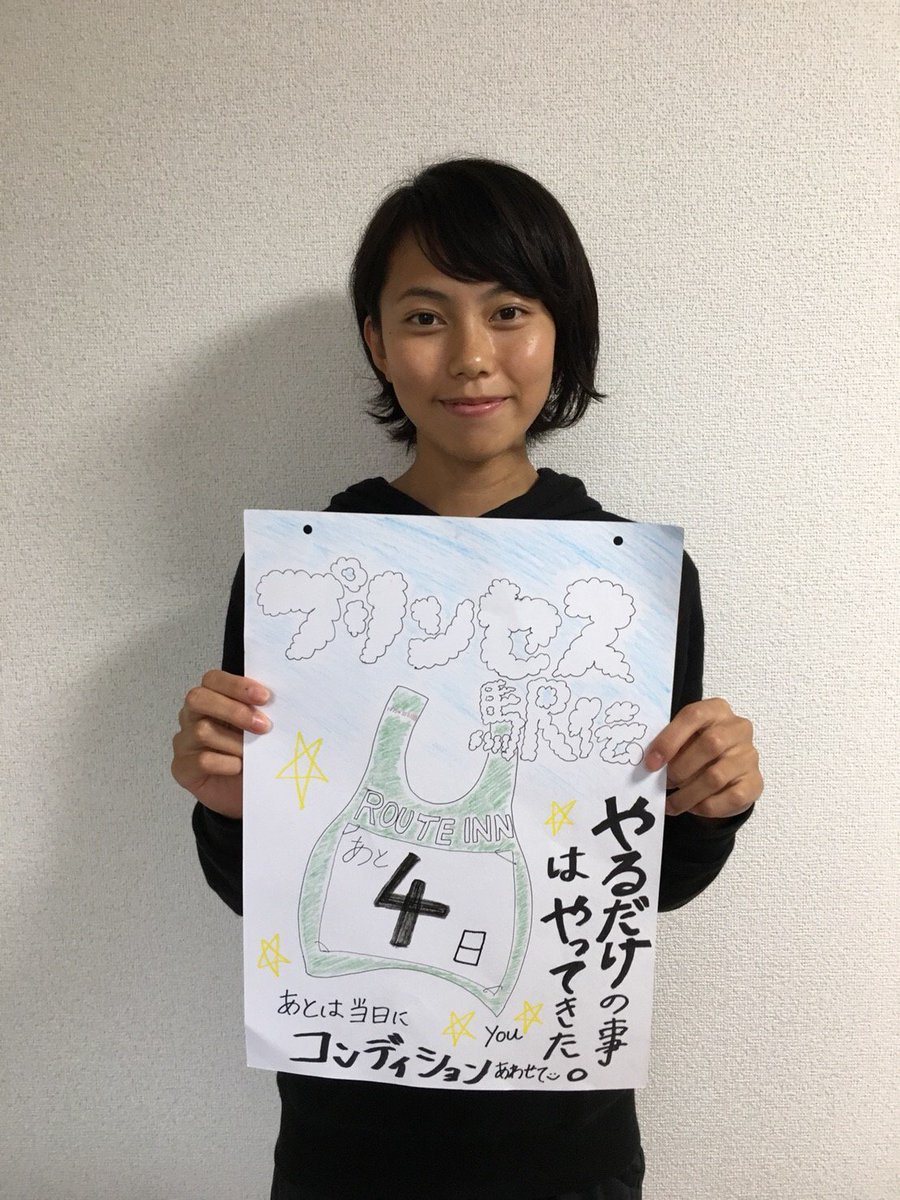 プリンセス
駅伝
ROUTE INN
あと
4
日
やるだけの事
はやってきた。
あとは当日に
コンディションあわせて
you